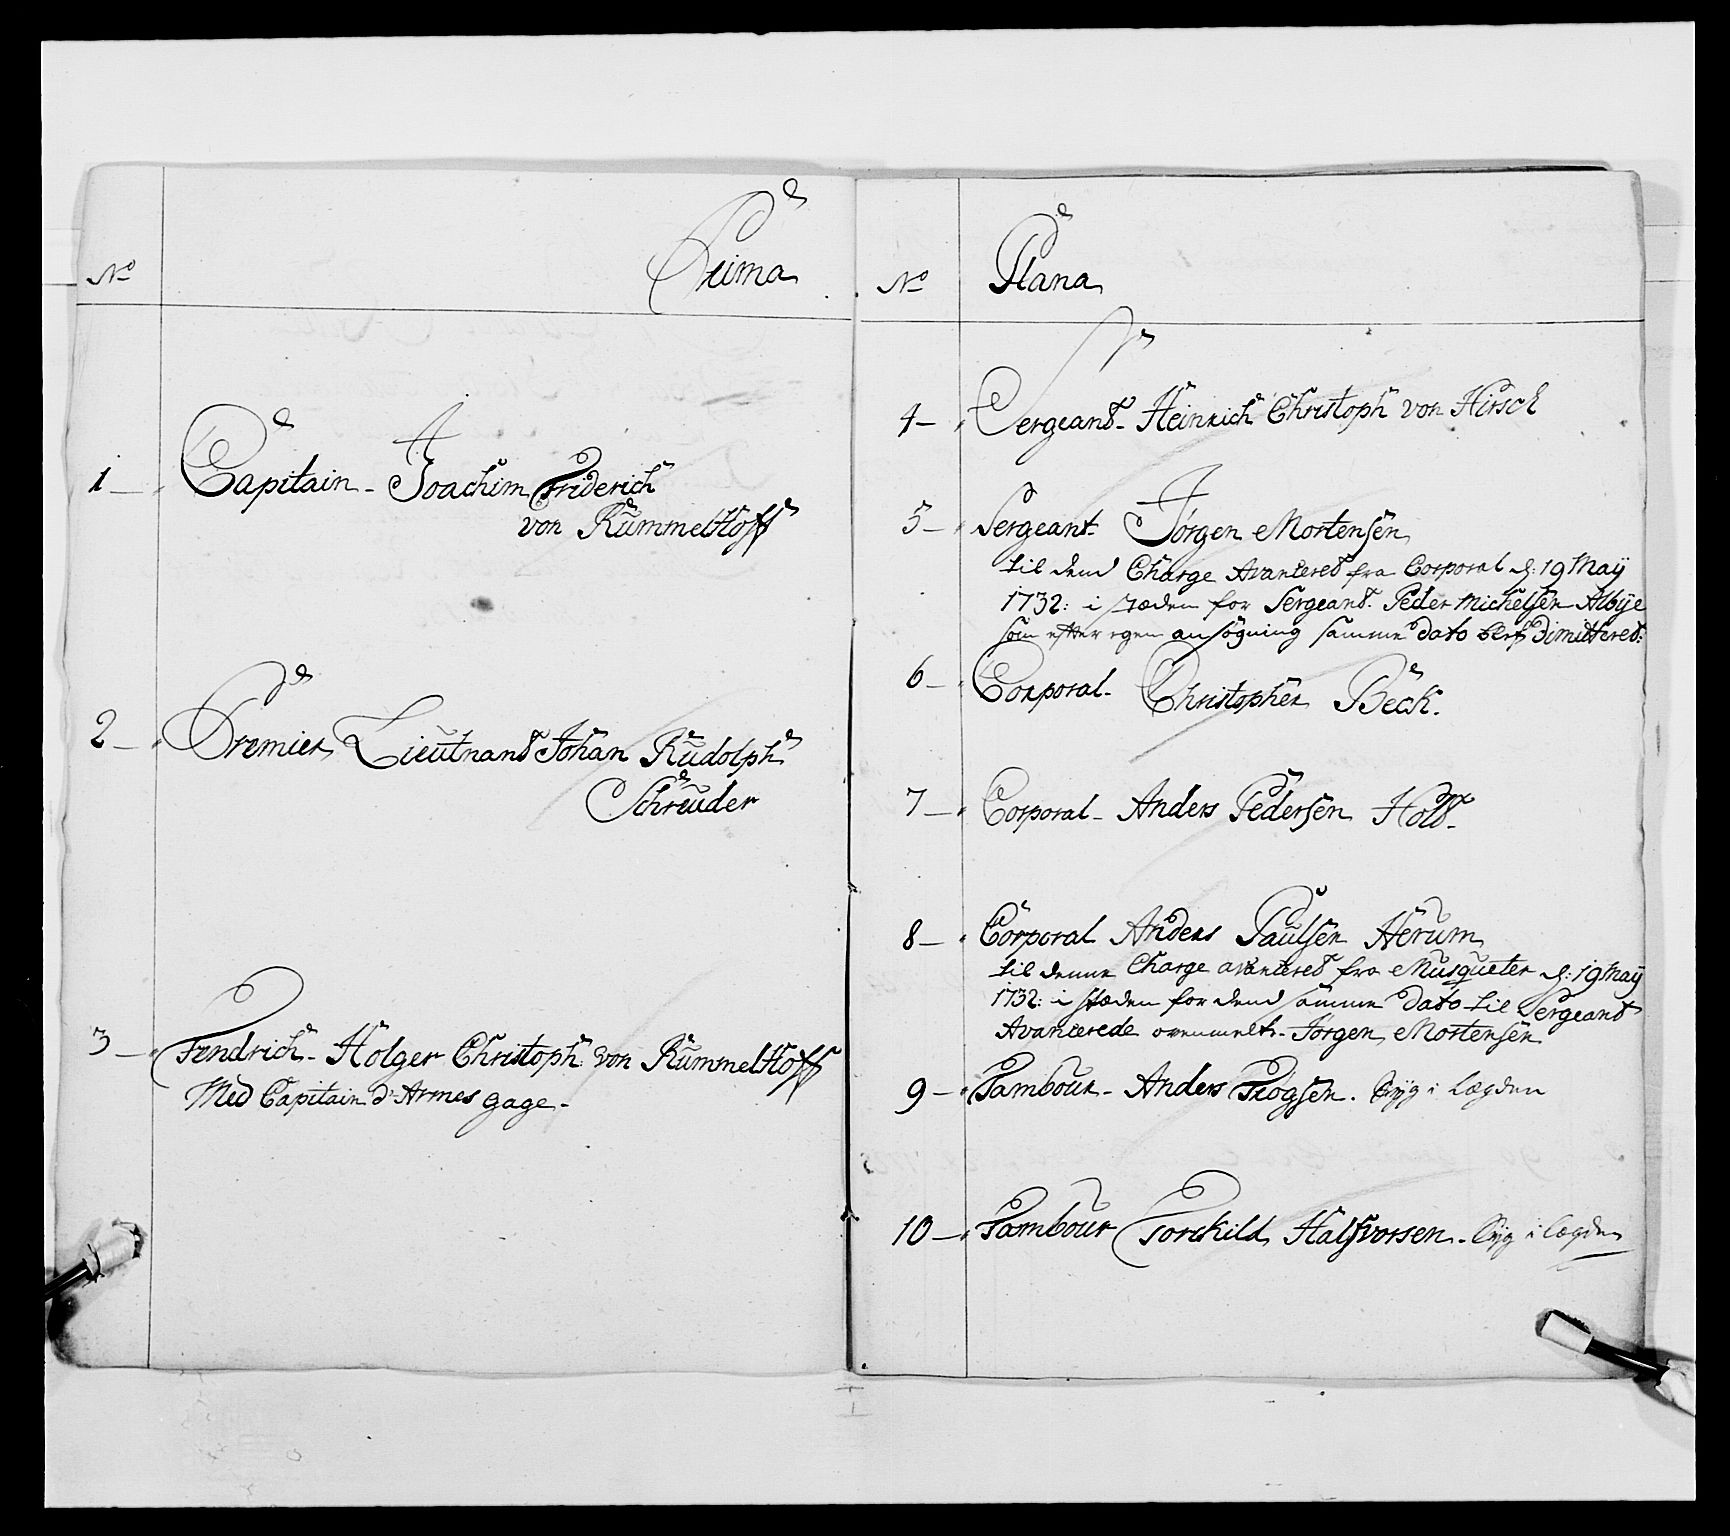 No
Prima
1 — Capitain - Joachim Friderich
von Rummelhoff
2 — Premier Lieutnant Johan Rudolph
Schreuder
3 — Fendrich - Holger Christoph von Rummelhoff
Med Capitain d'Armes gage -
No
Plana
4 — Sergeant - Heinrich Christoph von Hirsch
5 — Sergeant - Jørgen Mortensen
til dend Charge Avanceret fra Corporal d: 19 Maij
1732: i stæden for Sergeant. Peder Michelsen Albÿe
som efter egen ansøgning samme Dato blef Dimitteret:
6 — Corporal - Christopher Bëck.
7 — Corporal - Anders Pedersen Holt -
8 — Corporal Anders Paulsen Herum
til denne Charge avanceret fra Musqueter d: 19 Maij
1732: i stæden for dend samme Dato til Sergeant
Avancerede ovenmelte - Jørgen Mortensen
9 — Tambour - Anders Trogsen. Syg i Lægden
10 — Tambour Torskild Halfvorsen - Syg i Lægden